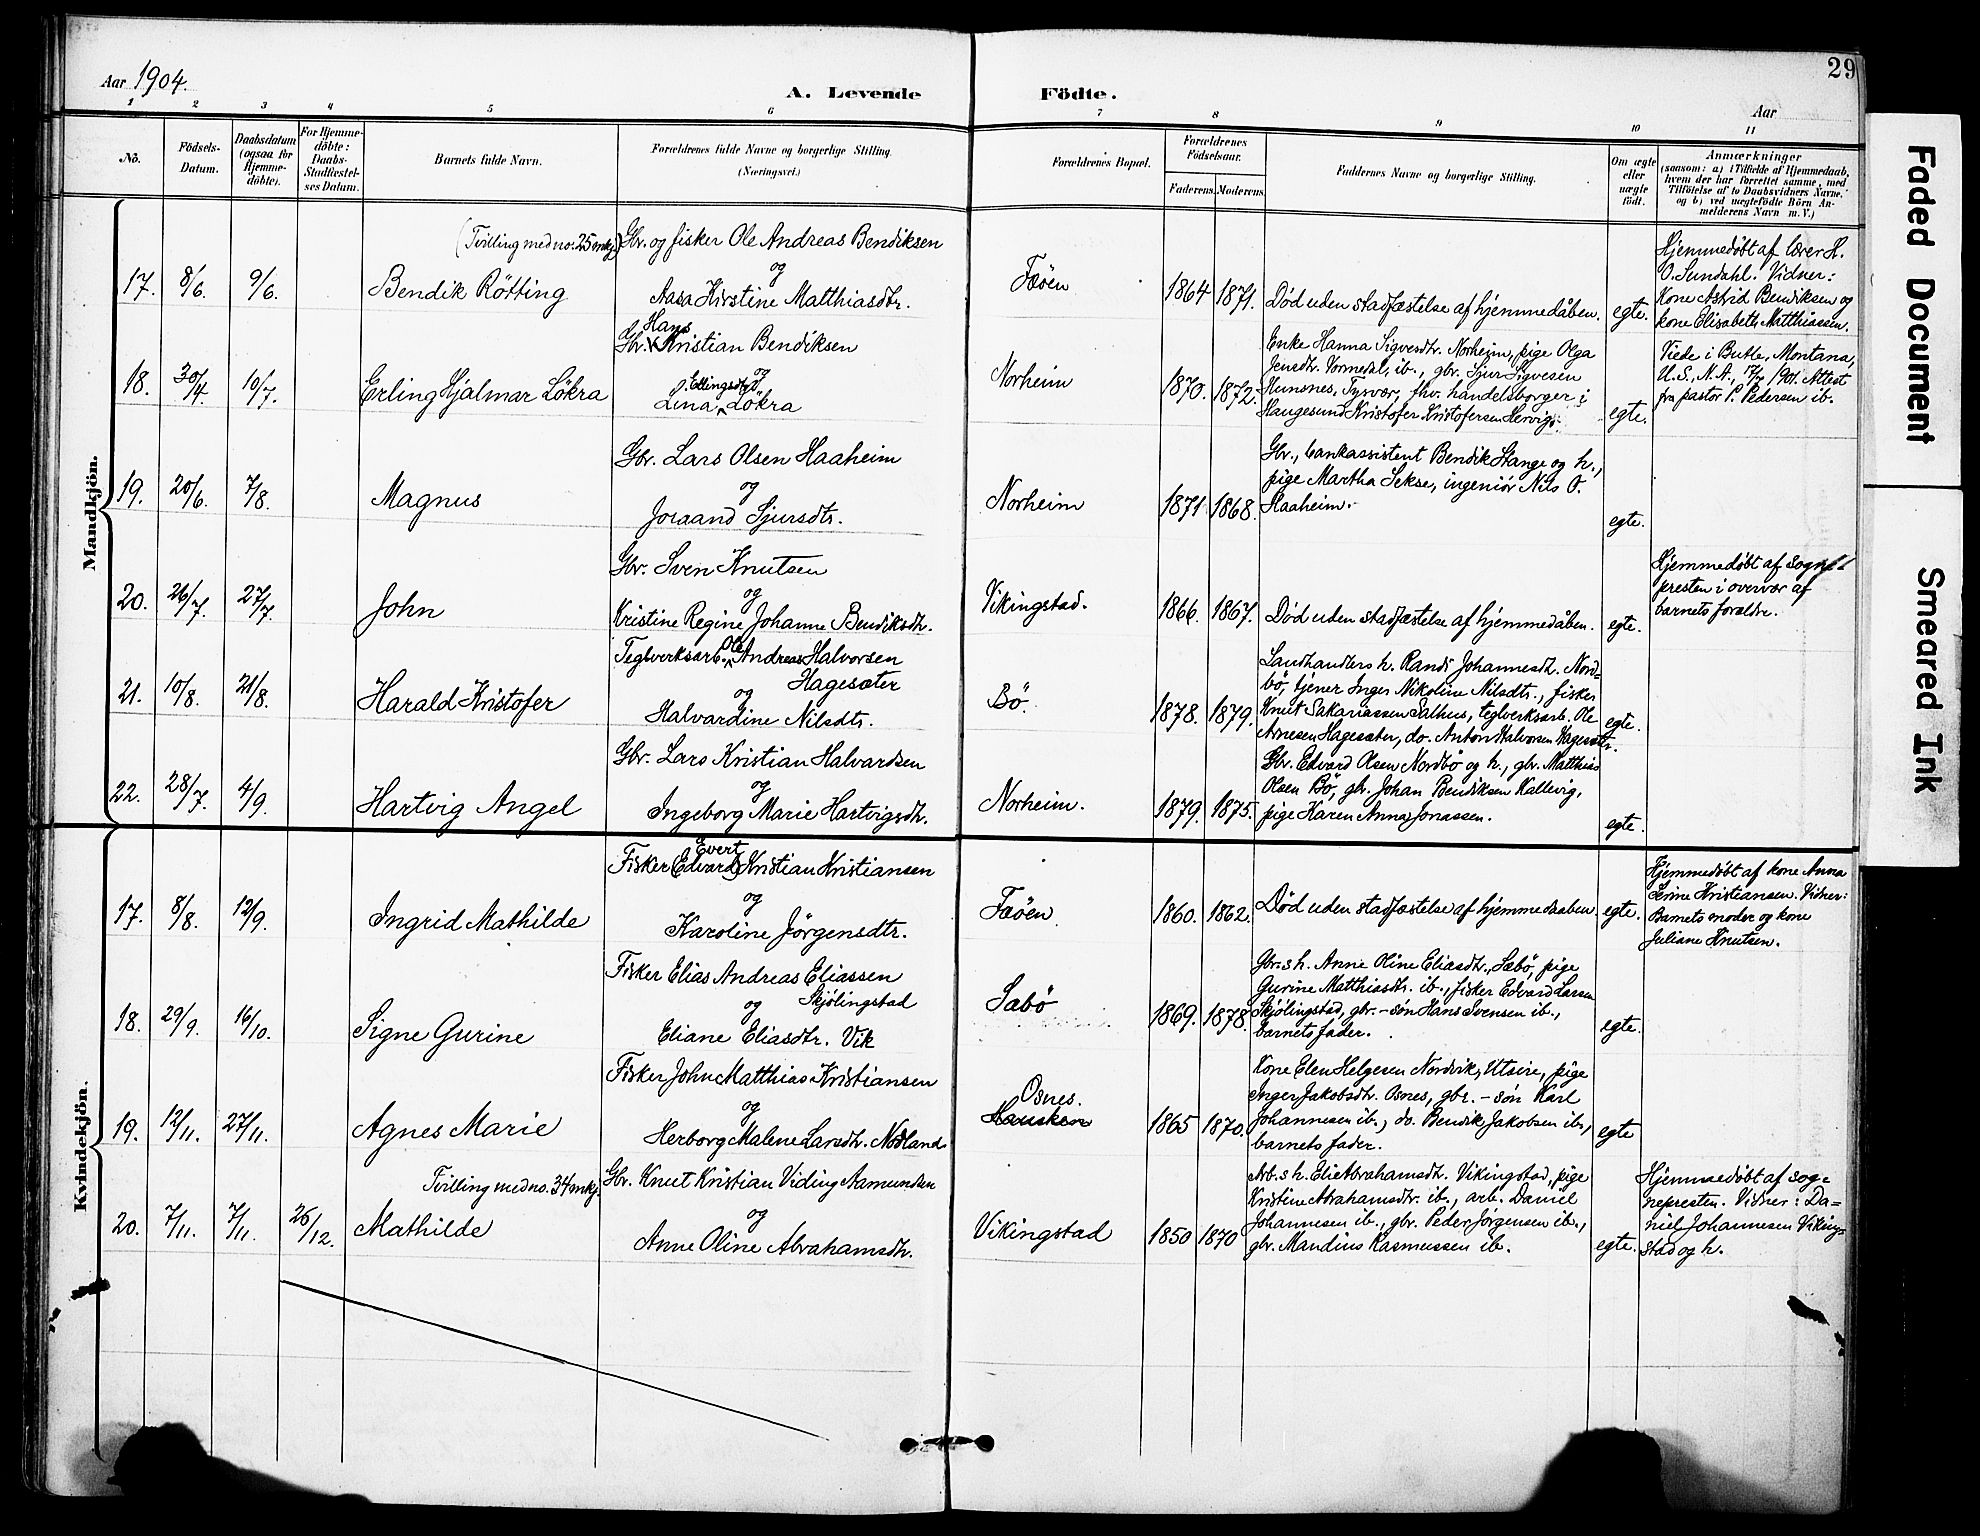 Aar 1904.
A. Levende Födte.
Aar
29
1 2 3 4 5 6 7 8 9 10 11
No.
Födsels-Datum.
Daabsdatum (ogsaa for Hjemme-döbte).
For Hjemme-döbte: Daabs-Stadfæstel-ses Datum.
Barnets fulde Navn.
Forældrenes fulde Navne og borgerlige Stilling.
(Næringsvei.)
Forældrenes Bopæl.
Forældrenes Födselsaar.
Faderens.
Moderens.
Faddernes Navne og borgerlige Stilling.
Om ægte eller uægte födt.
Anmærkninger
(saasom: a) i Tilfælde af Hjemmedaab,
hvem der har forrettet samme, med
Tilföielse af to Daabsvidners Navne,
og b) ved uægtefödte Börn An-
melderens Navn m. V.)
Mandkjön.
(Tvilling med no. 25 mkj.)
17. 8/6. 9/6. Bendik Rötting
Gbr. og fisker Ole Andreas Bendiksen
og
Aasa Kirstine Matthiasdtr.
Fæöen 1864 1871.
Död uden stadfæstelse af hjemmedåben. egte.
Hjemmedöbt af lærer H.
O. Sundahl. Vidner:
Kone Astrid Bendiksen og
kone Elisabeth Matthiassen.
18. 30/4. 10/7. Erling Hjalmar Lökra
Hans
Gbr. Kristian Bendiksen
og
Ellingsdtr.
Lina Lökra
Norheim 1870. 1872.
Enke Hanna Sigvesdtr. Norheim, pige Olga
Jensdtr. Vormedal, ib., gbr. Sjur Sigvesen
Hunsnes, Tysvær, fhv. handelsborger i
Haugesund Kristofer Kristofersen Hervig. egte.
Viede i Butte, Montana,
U.S., N.A., 17/7 1901. Attest
fra pastor P. Pedersen ib.
19. 20/6. 7/8. Magnus
Gbr. Lars Olsen Haaheim
og
Joraand Sjursdtr.
Norheim 1871 1868.
Gbr., bankassistent Bendik Stange og h.,
pige Martha Sekse, ingeniör Nils O.
Haaheim. egte.
20. 26/7. 27/7. John
Gbr. Sven Knutsen
og
Kristine Regine Johanne Bendiksdtr.
Vikingstad. 1866. 1867.
Död uden stadfæstelse af hjemmedåben. egte.
Hjemmedöbt af sogne-
presten i overvær af
barnets forældre.
21. 10/8. 21/8. Harald Kristofer
Teglverksarb. Ole Andreas Halvorsen
Hagesæter
og
Halvardine Nilsdtr.
Bö. 1878. 1879.
Landhandlers h. Randi Johannesdtr. Nord-
bö, tjener Inger Nikoline Nilsdtr., fisker
Knut Sakariassen Salhus, teglverksarb. Ole
Arnesen Hagesæter, do. Anton Halvorsen Hagesæter. egte.
22. 28/7. 4/9. Hartvig Angel
Gbr. Lars Kristian Halvardsen
og
Ingeborg Marie Hartvigsdtr.
Norheim. 1879. 1875.
Gbr. Edvard Olsen Nordbö og h., gbr. Matthias
Olsen Bö, gbr. Johan Bendiksen Kallevig,
pige Karen Anna Jonassen. egte.
Kvindekjön.
17. 8/8. 12/9. Ingrid Mathilde
Evert
Fisker (Edvard) Kristian Kristiansen
og
Karoline Jörgensdtr.
Fæöen 1860. 1862.
Död uden stadfæstelse af hjemmedaaben. egte.
Hjemmedöbt af kone Anna
Serine Kristiansen. Vidner:
Barnets moder og kone
Juliane Knutsen.
18. 29/9. 16/10. Signe Gurine
Fisker Elias Andreas Eliassen
og Skjölingstad
Eliane Eliasdtr. Vik
Sabö 1869. 1878.
Gbr.s h. Anne Oline Eliasdtr. Sæbö, pige
Gurine Matthiasdtr. ib., fisker Edvard Larsen
Skjölingstad, gbr.-sön Hans Svensen ib.,
barnets fader. egte.
19. 12/11. 27/11. Agnes Marie
Fisker John Matthias Kristiansen
og
Herborg Malene Larsdtr. Nodland
Osnes.
Hausken 1865 1870.
Kone Elen Helgesen Nordvik, Utsire, pige
Inger Jakobsdtr. Osnes, gbr.-sön Karl
Johannesen ib., do. Bendik Jakobsen ib.,
barnets fader. egte
Tvilling med no. 34 mkj.
20. 7/11. 7/11. 26/12. Mathilde
Gbr. Knut Kristian Viding Aamundsen
og
Anne Oline Abrahamsdtr.
Vikingstad 1850 1870
Arb.s h. Elie Abrahamsdtr. Vikingstad, pige
Kristine Abrahamsdtr. ib., arb. Daniel
Johannesen ib., gbr. Peder Jörgensen ib.,
gbr. Mandius Rasmussen ib. egte.
Hjemmedöbt af sog-
nepresten. Vidner: Da-
niel Johannesen Viking-
stad og h.
Faded Document
Smeared Ink